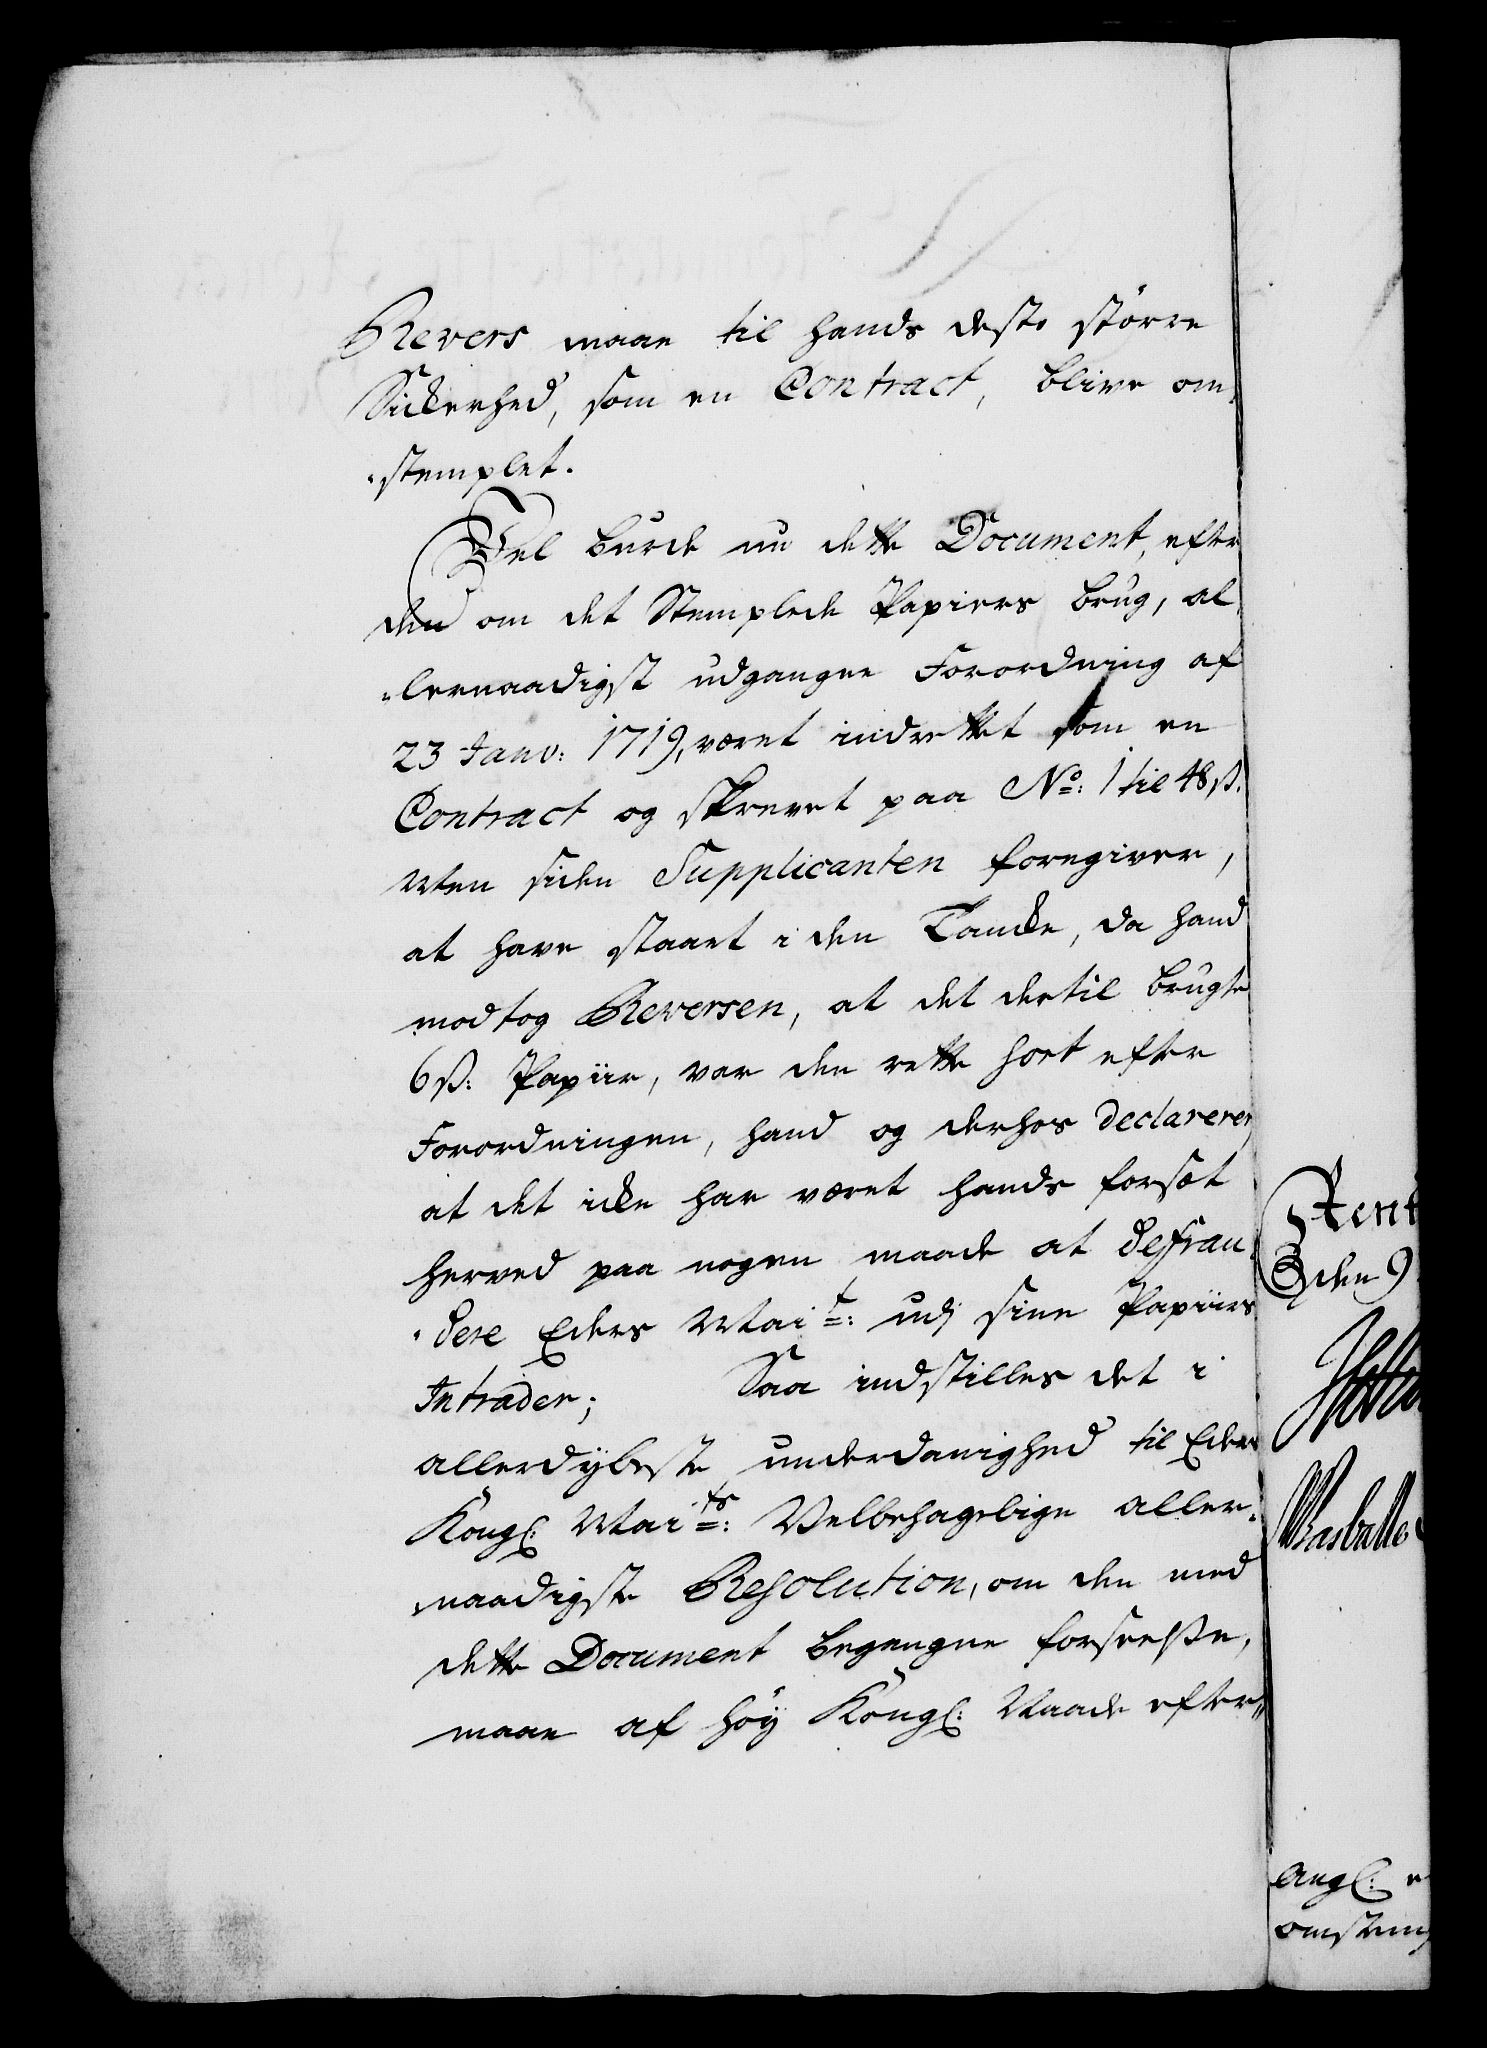 Revers maae til hands desto större
Sickerhed, som en Contract, blive om
stemplet.
Vel burde nu dette Document, efter
den om det Stemplede Papiers brug, al
lernaadigst udgangne Forordning af
23 Janv: 1719, været indrettet som en
Contract og skrevet paa No: 1 til 48 ß.
Men siden Supplicanten foregiver,
at have staaet i den Tancke, da hand
modtog Reversen, at det dertil brugte
6 ß: Papiir, var den rette sort efter
Forordningen, hand og derhos declarerer,
at det icke har været hands forsæt
herved paa nogen maade at defrau
dere Eders Mait: udj sine Papiirs
Intrader; Saa indstilles det i
allerdybeste underdanighed til Eders
Kongl: Maits: Velbehagelige aller
naadigste Resolution, om den med
dette Document begangne forseelse,
maae af höy Kongl: Naade efter
Rent
den 9
Angl: e
omstem